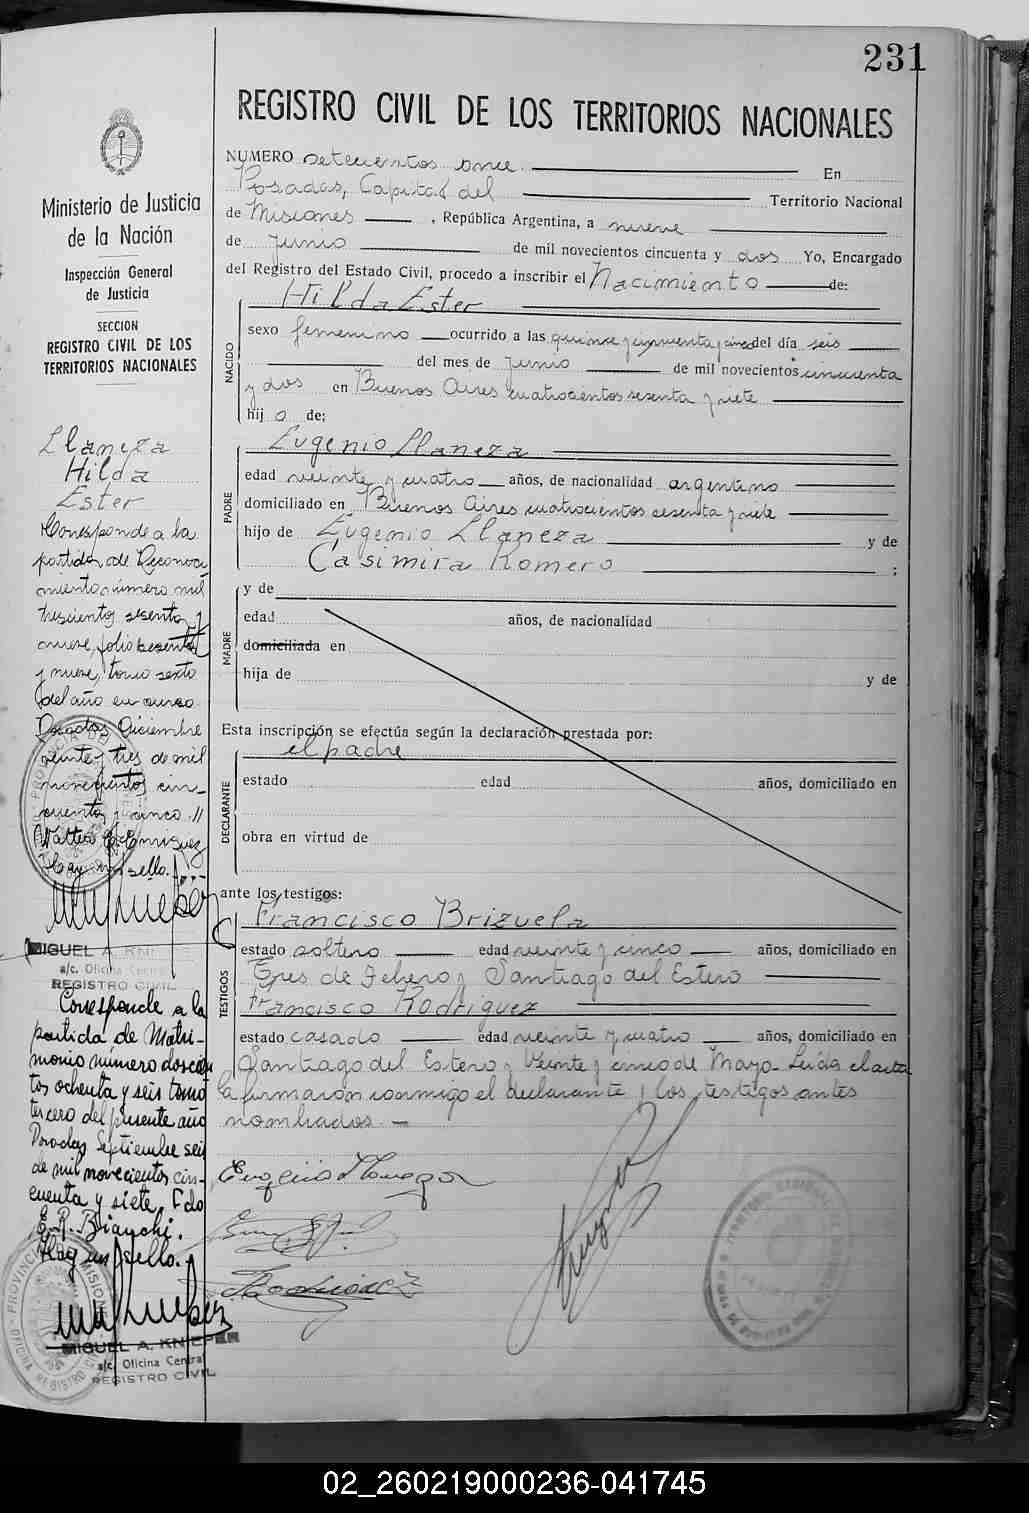 231
REGISTRO CIVIL DE LOS TERRITORIOS NACIONALES
Ministerio de Justicia
de la Nación
Inspección General
de Justicia
SECCION
REGISTRO CIVIL DE LOS
TERRITORIOS NACIONALES
Llaneza
Hilda
Ester
Corresponde a la
partida de Reconoci
miento número mil
trescientos sesenta y
nueve, folio sesenta
y nueve, tomo sexto
del año en curso
Posadas, Diciembre
veinte y tres de mil
novecientos cin-
cuenta y cinco //
Walter E. Enriquez
Hay un sello.
MIGUEL A. KNIEPER
a/c. Oficina Central
REGISTRO CIVIL
Corresponde a la
partida de Matri-
monio numero doscien
tos ochenta y seis tomo
tercero del presente año
Posadas Septiembre seis
de mil novecientos cin-
cuenta y siete. Fdo
E. R. Bianchi.
Hay un sello.
MIGUEL A. KNIEPER
a/c. Oficina Central
REGISTRO CIVIL
NUMERO setecientos once En
Posadas, Capital del Territorio Nacional
de Misiones, República Argentina, a nueve
de Junio de mil novecientos cincuenta y dos Yo, Encargado
del Registro del Estado Civil, procedo a inscribir el Nacimiento de:
NACIDO
Hilda Ester
sexo femenino ocurrido a las quince y cincuenta y cinco del día seis
del mes de Junio de mil novecientos cincuenta
y dos en Buenos Aires cuatrocientos sesenta y siete
hij a de;
PADRE
Eugenio Llaneza
edad veinte y cuatro años, de nacionalidad argentino
domiciliado en Buenos Aires cuatrocientos sesenta y siete
hijo de Eugenio Llaneza y de
Casimira Romero ;
MADRE
y de
edad años, de nacionalidad
domiciliada en
hija de y de
Esta inscripción se efectúa según la declaración prestada por:
DECLARANTE
el padre
estado edad años, domiciliado en
obra en virtud de
ante los testigos:
TESTIGOS
Francisco Brizuela
estado soltero edad veinte y cinco años, domiciliado en
Tres de Febrero y Santiago del Estero
Francisco Rodriguez
estado casado edad veinte y cuatro años, domiciliado en
Santiago del Estero y Veinte y cinco de Mayo. Leída el acta
la firmaron conmigo el declarante y los testigos antes
nombrados. —
Eugenio Llaneza
02_260219000236-041745